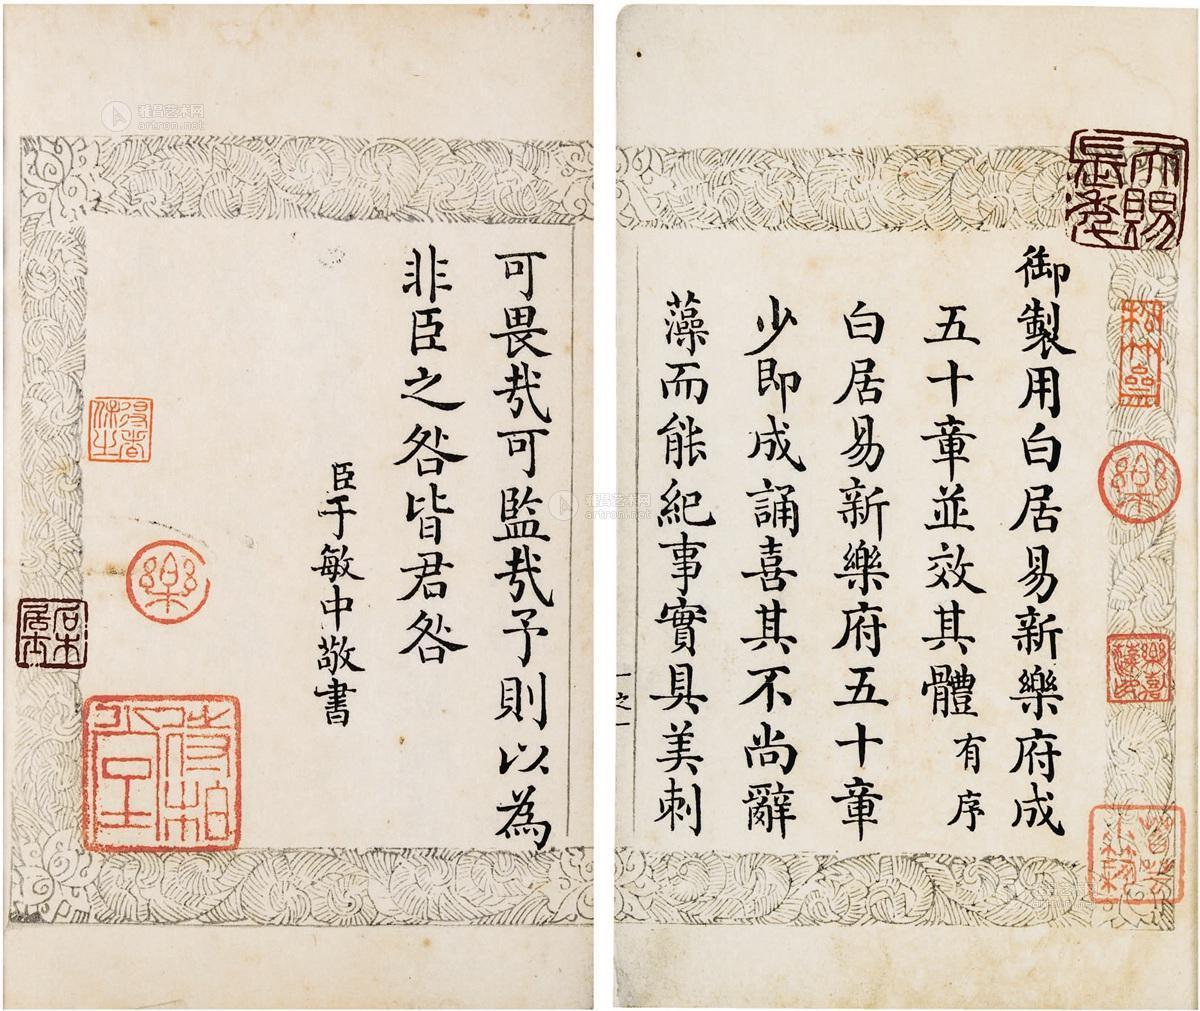 御製用白居易新樂府成
五十章並效其體有序
白居易新樂府五十章
少即成誦喜其不尚辭
藻而能紀事實具美刺
一之一
天賜
樂
可畏哉可監哉予則以為
非臣之咎皆君咎
臣于敏中敬書
樂
雅昌艺术网
artron.net
雅昌艺术网
artron.net